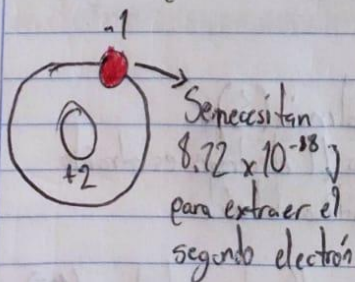 -1
+2
Se necesitan
8.72 x 10⁻¹⁸ J
para extraer el
segundo electrón